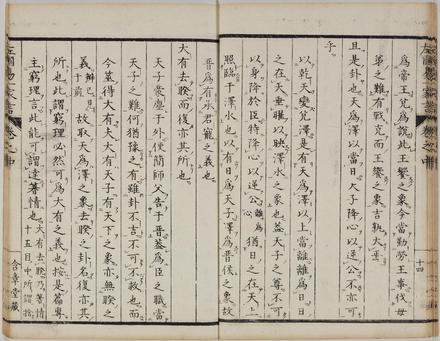 爲帝王兌爲說此王饗之象今當勤勞王事伐母
弟之難有戰克而王饗之象吉孰大焉
且是卦也天爲澤以當日天子降心以逆公不亦可
乎
以乾天變兌澤是有天爲澤以上當離離爲日日
之在天垂曜以映澤水之象也蓋天子之尊不可
以身降於臣特降心以逆公離爲猶日之在天上
照臨于澤水也以有日爲天子澤爲晉侯之象故
十四
晉爲有承君寵之義也
大有去睽而復亦其所也
天子蒙塵于外使簡師父告于晉蓋爲臣之職當
天子之難何猶豫之有雖卦不吉不可不救也而
今筮得大有夫大有天子有天下之象亦無睽之
義辨已見于前故取天爲澤之象去睽之卦名復亦其
所也此謂窮理必然可爲大有之義也按是篇專
主窮理言此能可謂達筮情也大有去睽乃筮情十五目中所謂捨
左國易一家言 卷之中
含章堂藏